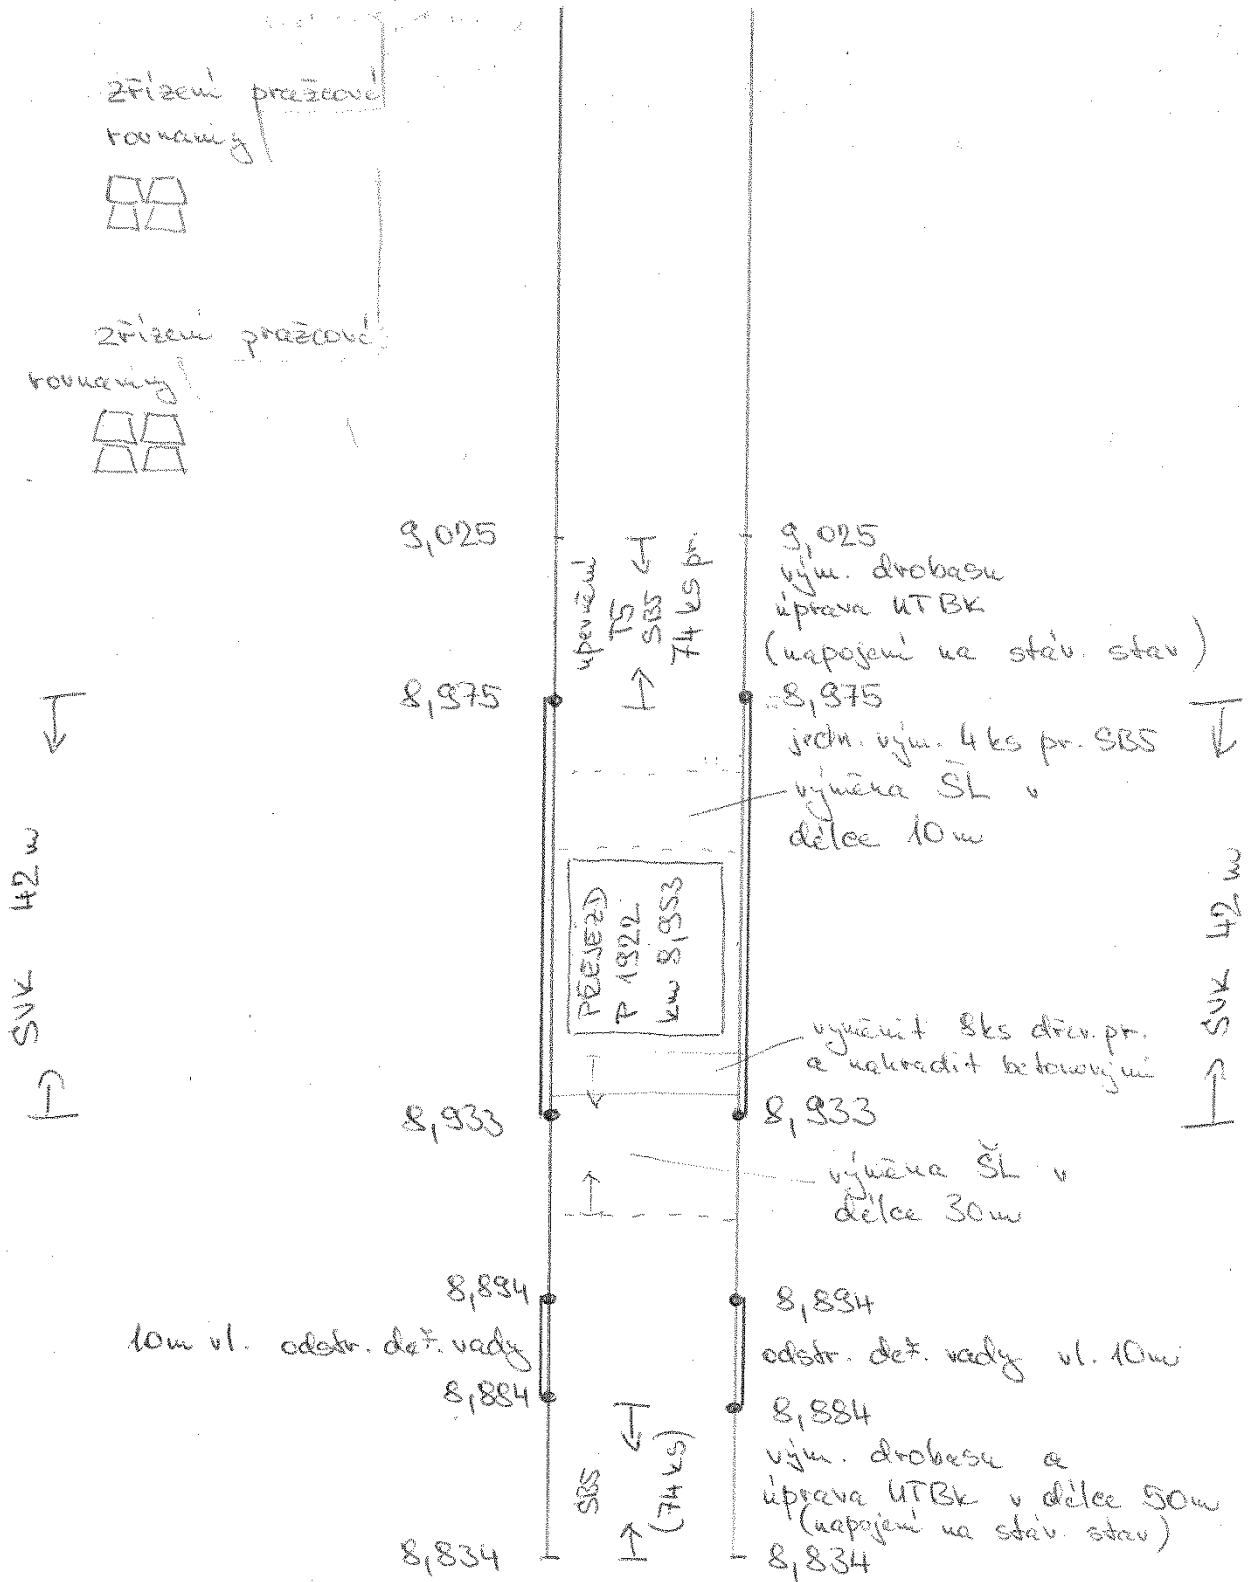 zřízení pražcové
rovnaniny
zřízení pražcové
rovnaniny
9,025
upevnění
T5
SB5
74 ks pr.
9,025
vým. drobasu
úprava UTBK
(napojení na stáv. stav)
8,975
8,975
jedn. vým. 4 ks pr. SB5
výměna ŠL v
délce 10m
SVK 42 m
PŘEJEZD
P 1922
km 8,953
SVK 42 m
vyměnit 8ks dřev. pr.
a nahradit betonovými
8,933
8,933
výměna ŠL v
délce 30m
8,894
8,894
10m vl. odstr. def. vady
odstr. def. vady vl. 10m
8,884
8,884
SB5
(74 ks)
vým. drobasu a
úprava UTBK v délce 50m
(napojení na stáv. stav)
8,834
8,834